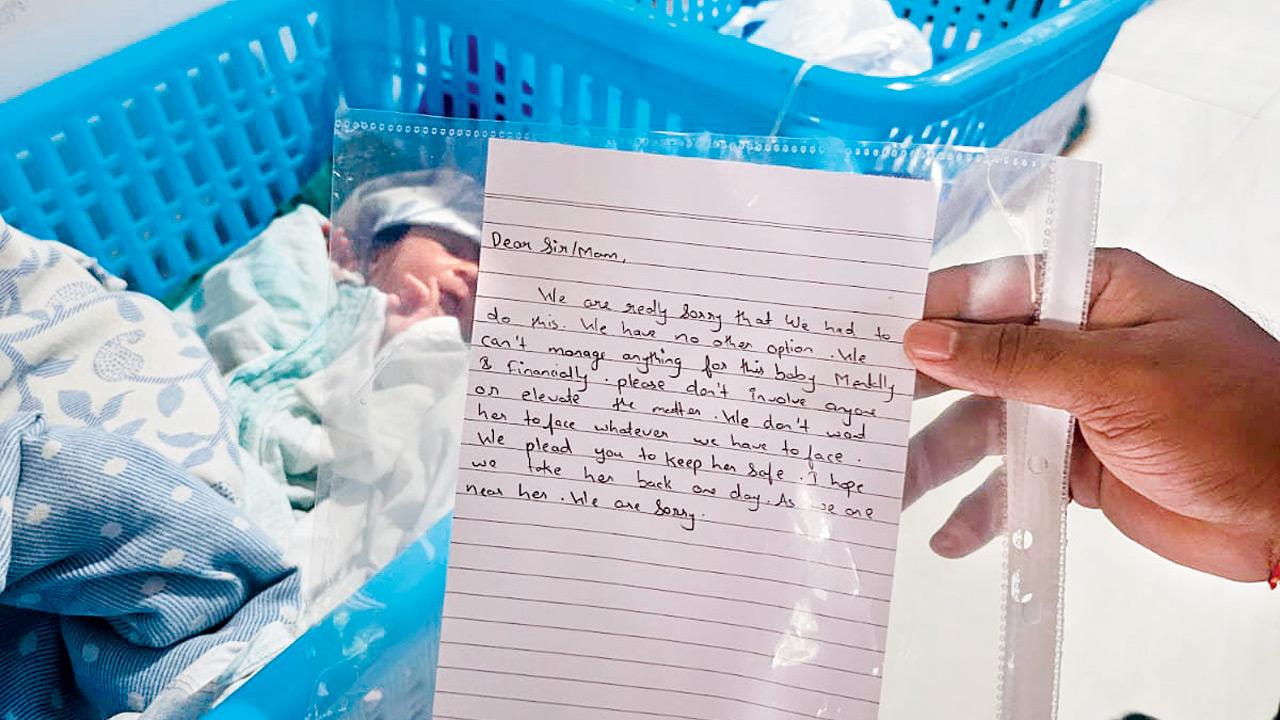 Dear Sir/Mam,
We are really sorry that we had to
do this. We have no other option. We
can't manage anything for this baby Mentally
& financially. please don't involve anyone
or elevate the matter. We don't want
her to face whatever we have to face.
We plead you to keep her safe. I hope
we take her back one day. As we are
near her. We are sorry.